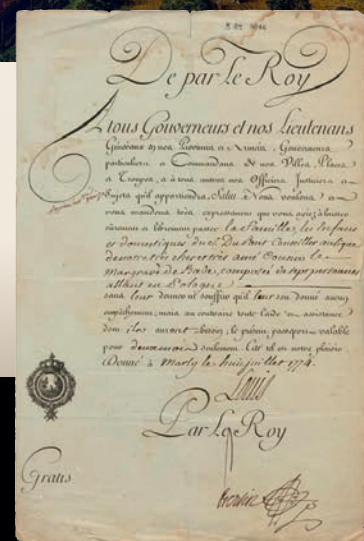 De par le Roy
A tous Gouverneurs et nos Lieutenans
Généraux en nos Provinces et Armées, Gouverneurs
particuliers et Commandans de nos Villes, Places
et Troupes, et à tous autres nos Officiers Justiciers et
Sujets qu'il appartiendra, Salut. Nous voulons et
vous mandons très expressement que vous ayez à laisser
surement et librement passer la famille, les enfans
et domestiques du S. Du Pont Conseiller aulique
de notre très cher et très amé Cousin le
Margrave de Bade, composée de sept personnes
allant en Pologne
sans leur donner ni souffrir qu'il leur soit donné aucun
empêchement, mais au contraire toute l'aide et assistance
dont ils auront besoin; le présent passeport valable
pour deux mois seulement. Car tel est notre plaisir.
Donné à Marly le huit juillet 1774.
Louis
Par Le Roy
Gratis